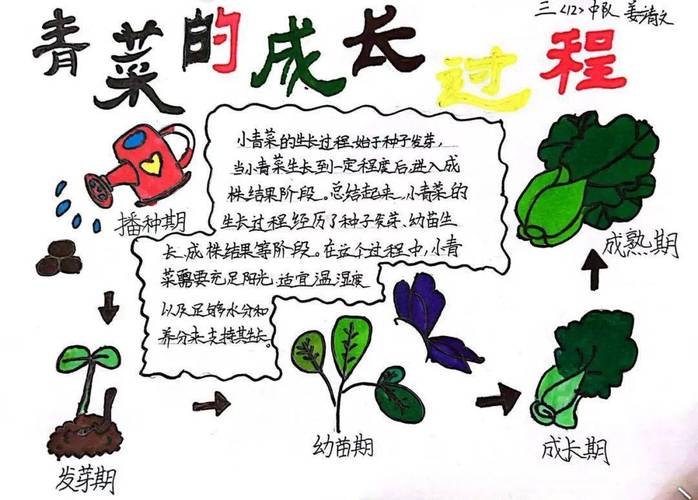 三<12>中队 姜清文
青菜的成长过程
小青菜的生长过程,始于种子发芽,
当小青菜生长到一定程度后,进入成
株结果阶段。总结起来,小青菜的
生长过程,经历了种子发芽、幼苗生
长、成株结果等阶段。在这个过程中,小青
菜需要充足阳光,适宜温湿度
以及足够水分和
养分来支持其生长。
播种期
发芽期
幼苗期
成长期
成熟期